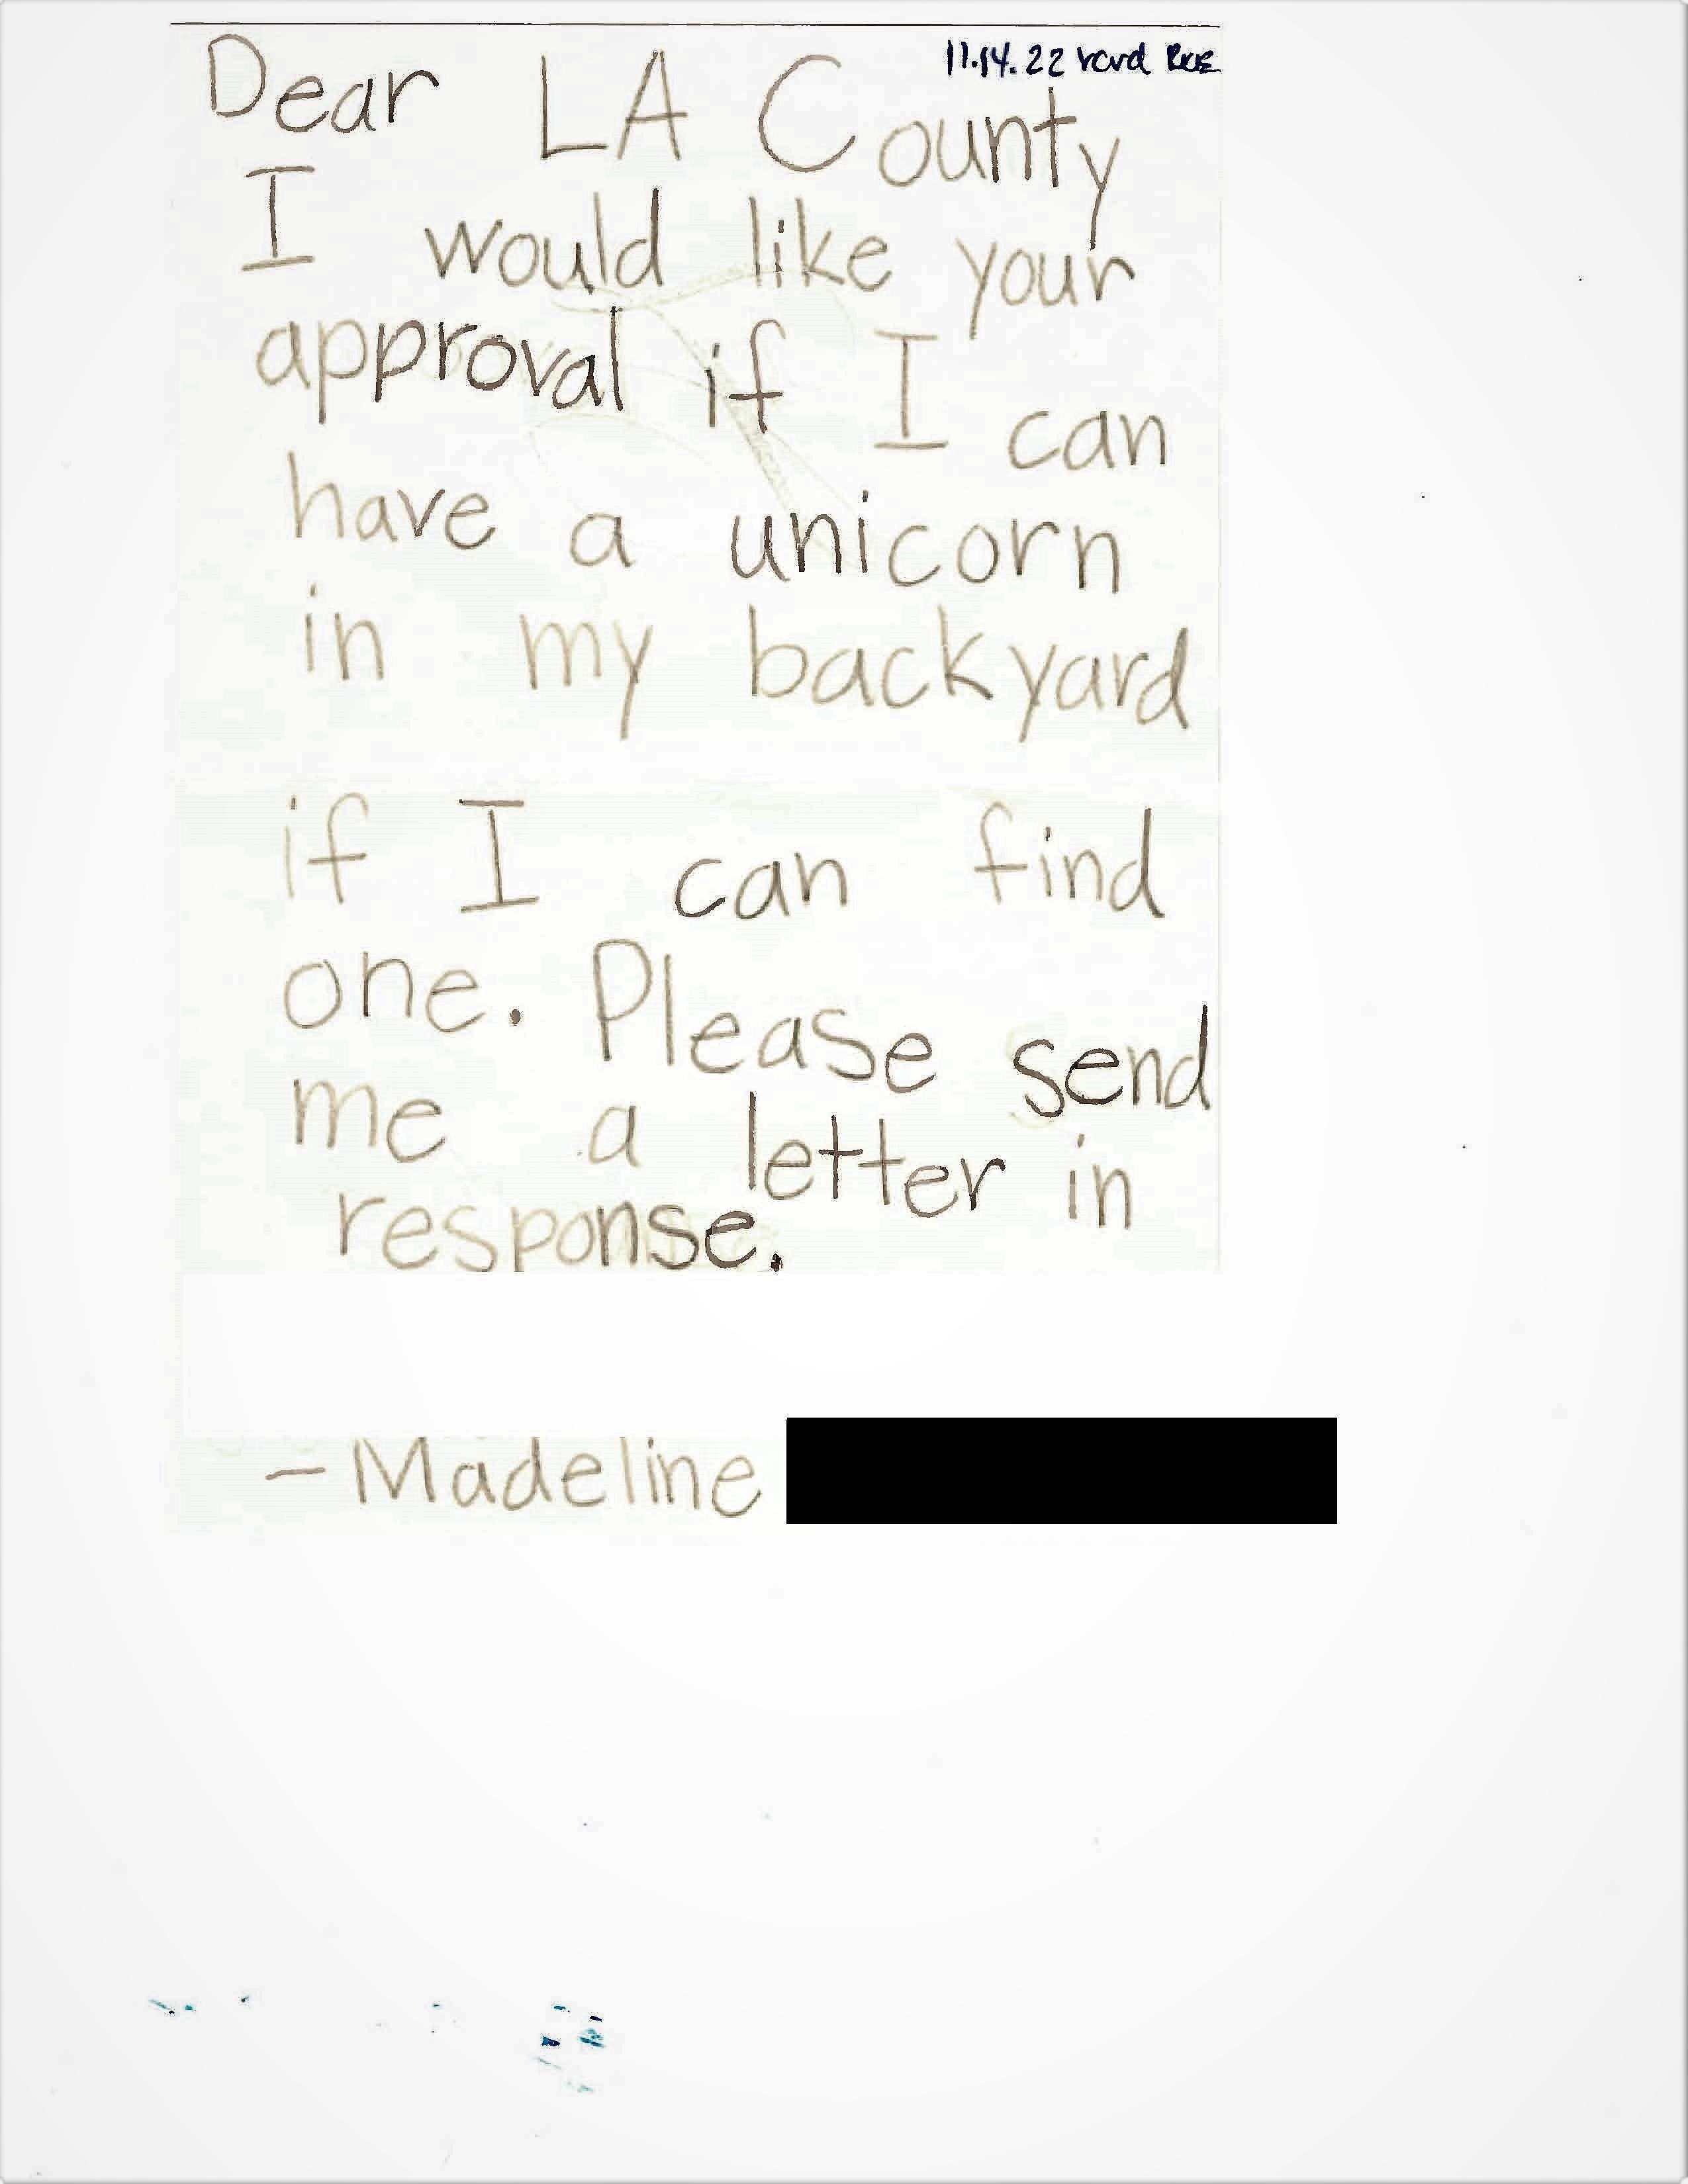 11.14.22 rcvd
Dear LA County
I would like your
approval if I can
have a unicorn
in my backyard
if I can find
one. Please send
me a letter in
response.
- Madeline